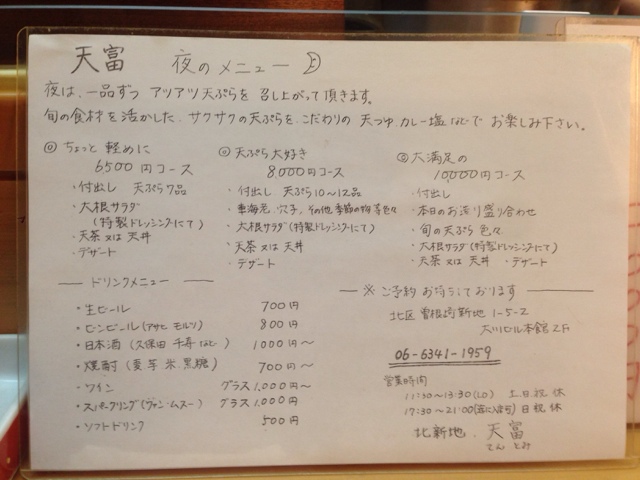 天富 夜のメニュー
夜は、一品ずつ アツアツ天ぷらを 召し上がって頂きます。
旬の食材を活かした、サクサクの天ぷらを、こだわりの 天つゆ、カレー塩などで お楽しみ下さい。
◎ ちょっと 軽めに
6500円コース
・付出し 天ぷら7品
・大根サラダ
(特製ドレッシングにて)
・天茶 又は 天丼
・デザート
◎ 天ぷら大好き
8,000円コース
・付出し 天ぷら10〜12品
・車海老、穴子、その他 季節の物 等色々
・大根サラダ(特製ドレッシングにて)
・天茶 又は 天丼
・デザート
◎ 大満足の
10,000円コース
・付出し
・本日のお造り盛り合わせ
・旬の天ぷら 色々
・大根サラダ(特製ドレッシングにて)
・天茶 又は 天丼 ・デザート
— ドリンクメニュー —
・生ビール 700円
・ビンビール(アサヒ モルツ) 800円
・日本酒(久保田 千寿 など) 1000円〜
・焼酎(麦 芋 米 黒糖) 700円〜
・ワイン グラス 1,000円〜
・スパークリング(ヴァン・ムスー) グラス 1,000円
・ソフトドリンク 500円
— ※ ご予約 お待ちしております —
北区 曽根崎新地 1-5-2
大川ビル本館 2F
06-6341-1959
営業時間
11:30〜13:30(LO) 土日祝 休
17:30〜21:00 日祝 休
北新地 天富
てん とみ